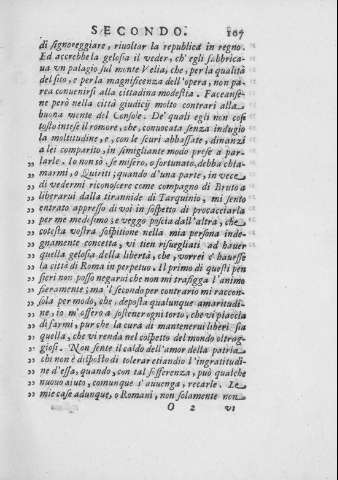 SECONDO. 107
di signoreggiare, riuoltar la republica in regno.
Ed accrebbe la gelosia il veder, ch'egli fabbrica-
ua vn palagio sul monte Velia, che, per la qualità
del sito, e per la magnificenza dell'opera, non pa-
rea conuenirsi alla cittadina modestia. Faceanse-
ne però nella città giudicij molto contrari alla
buona mente del Console. De' quali egli non così
tosto intese il romore, che, conuocata senza indugio
la moltitudine, e, con le scuri abbassate, dinanzi
a lei comparito, in simigliante modo prese a par-
„ larle. Io non sò se misero, o fortunato, debba chia-
„ marmi, o Quiriti; quando d'una parte, in vece
„ di vedermi riconoscere come compagno di Bruto a
„ liberarui dalla tirannide di Tarquinio, mi sento
„ entrato appresso di voi in sospetto di procacciarla
„ per me medesimo; e veggo poscia dall'altra, che
„ cotesta vostra sospitione nella mia persona inde-
„ gnamente concetta, vi tien risuegliati ad hauer
„ quella gelosia della libertà, che, vorrei c'hauesse
„ la città di Roma in perpetuo. Il primo di questi pen
„ sieri non posso negarui che non mi trafigga l'animo
„ fieramente; ma 'l secondo per contrario mi raccon-
„ sola per modo, che, deposta qualunque amaritudi-
„ ne, io m'offero a sostener ogni torto, che vi piaccia
„ di farmi, pur che la cura di mantenerui liberi sia
„ quella, che vi renda nel cospetto del mondo oltrag-
„ giosi. Non sente il caldo dell'amor della patria
„ chi non è disposto di tolerar etiandio l'ingratitudi-
„ ne d'essa, quando, con tal sofferenza, può qualche
„ nuouo aiuto, comunque s'auuenga, recarle. Le
„ mie case adunque, o Romani, non solamente non
O 2 vi